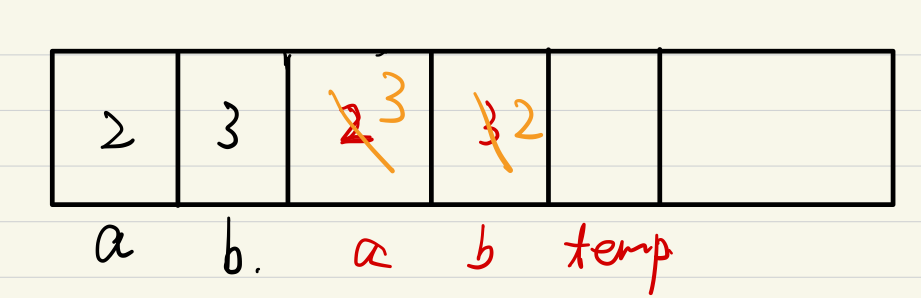 2 3 2 3 3 2
a b. a b temp